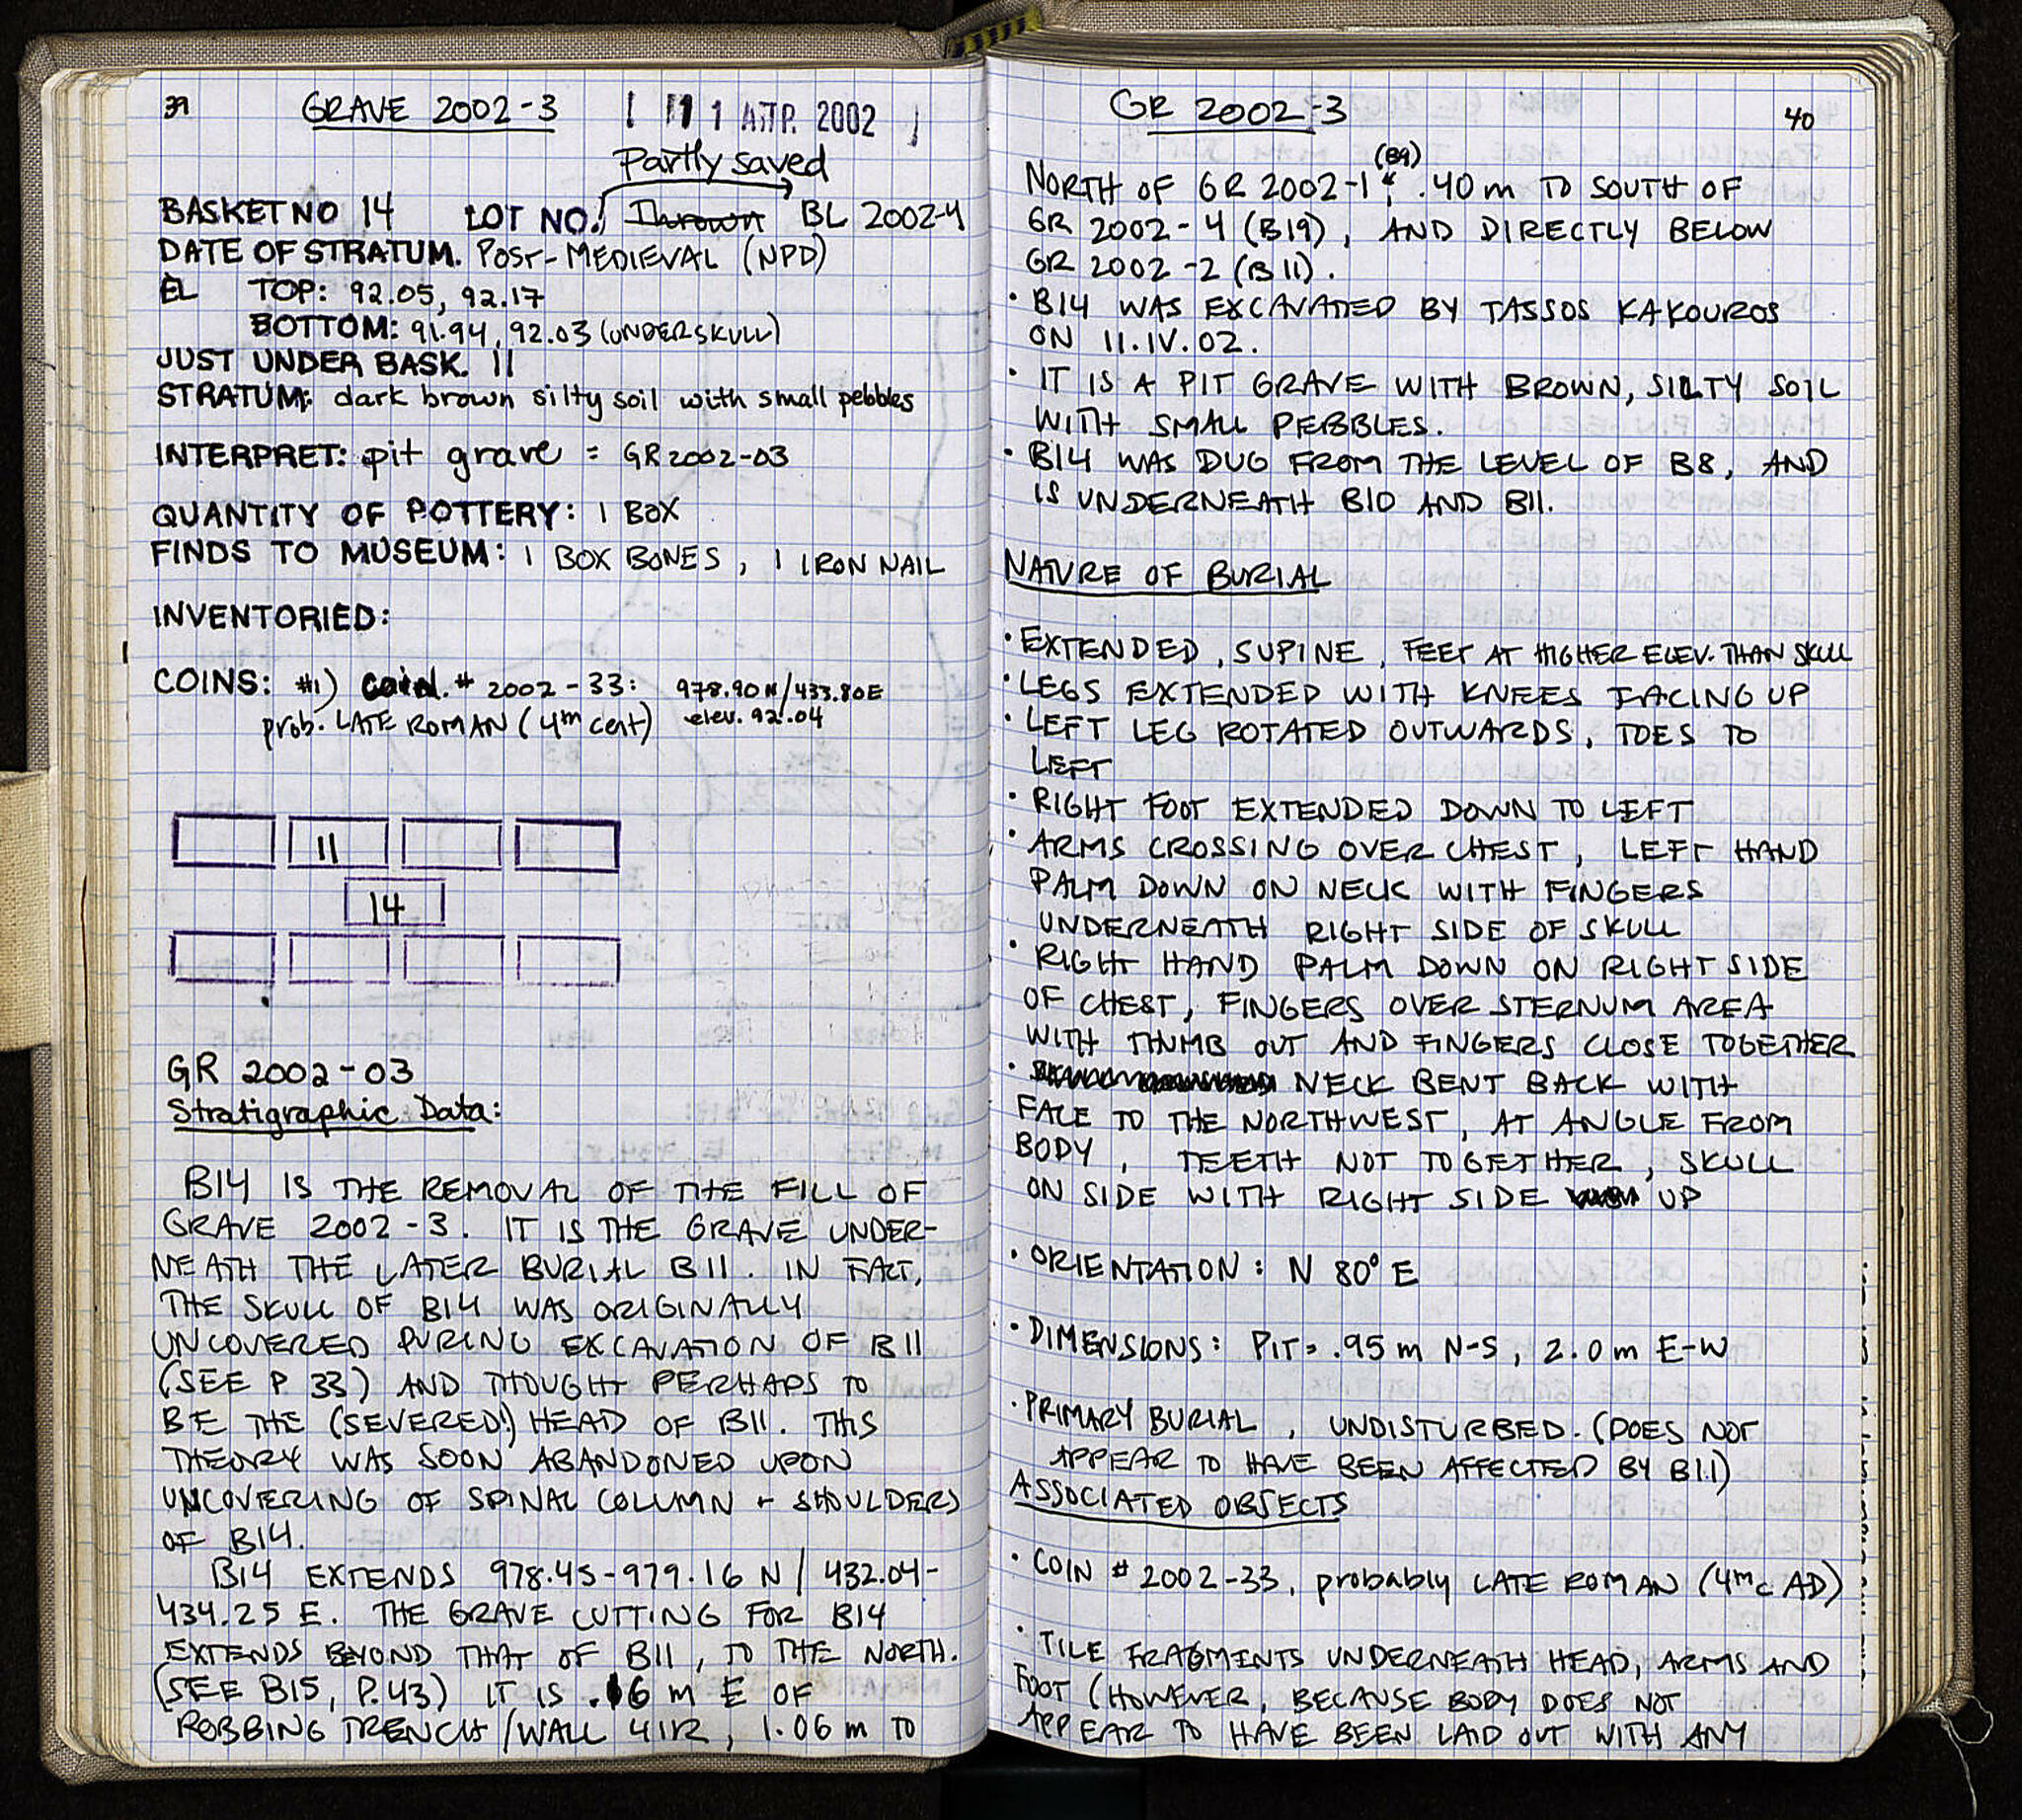 39
GRAVE 2002-3
11 ΑΠΡ. 2002
Partly saved
BASKET NO 14 LOT NO. Thrown BL 2002-4
DATE OF STRATUM. POST-MEDIEVAL (NPD)
EL TOP: 92.05, 92.17
BOTTOM: 91.94, 92.03 (UNDER SKULL)
JUST UNDER BASK. 11
STRATUM: dark brown silty soil with small pebbles
INTERPRET: pit grave = GR 2002-03
QUANTITY OF POTTERY: 1 BOX
FINDS TO MUSEUM: 1 BOX BONES, 1 IRON NAIL
INVENTORIED:
COINS: #1) coin # 2002-33: 978.90 N/433.80 E
prob. LATE ROMAN (4th cent) elev. 92.04
11
14
GR 2002-03
Stratigraphic Data:
B14 IS THE REMOVAL OF THE FILL OF
GRAVE 2002-3. IT IS THE GRAVE UNDER-
NEATH THE LATER BURIAL B11. IN FACT,
THE SKULL OF B14 WAS ORIGINALLY
UNCOVERED DURING EXCAVATION OF B11
(SEE P 33) AND THOUGHT PERHAPS TO
BE THE (SEVERED!) HEAD OF B11. THIS
THEORY WAS SOON ABANDONED UPON
UNCOVERING OF SPINAL COLUMN + SHOULDERS
OF B14.
B14 EXTENDS 978.45-979.16 N / 432.04-
434.25 E. THE GRAVE CUTTING FOR B14
EXTENDS BEYOND THAT OF B11, TO THE NORTH.
(SEE B15, P.43) IT IS .16 m E OF
ROBBING TRENCH/WALL 41R, 1.06 m TO
GR 2002-3
40
(B9)
NORTH OF GR 2002-1, .40 m TO SOUTH OF
GR 2002-4 (B19), AND DIRECTLY BELOW
GR 2002-2 (B11).
• B14 WAS EXCAVATED BY TASSOS KAKOUROS
ON 11.IV.02.
• IT IS A PIT GRAVE WITH BROWN, SILTY SOIL
WITH SMALL PEBBLES.
• B14 WAS DUG FROM THE LEVEL OF B8, AND
IS UNDERNEATH B10 AND B11.
NATURE OF BURIAL
• EXTENDED, SUPINE, FEET AT HIGHER ELEV. THAN SKULL
• LEGS EXTENDED WITH KNEES FACING UP
• LEFT LEG ROTATED OUTWARDS, TOES TO
LEFT
• RIGHT FOOT EXTENDED DOWN TO LEFT
• ARMS CROSSING OVER CHEST, LEFT HAND
PALM DOWN ON NECK WITH FINGERS
UNDERNEATH RIGHT SIDE OF SKULL
• RIGHT HAND PALM DOWN ON RIGHT SIDE
OF CHEST, FINGERS OVER STERNUM AREA
WITH THUMB OUT AND FINGERS CLOSE TOGETHER
• NECK BENT BACK WITH
FACE TO THE NORTHWEST, AT ANGLE FROM
BODY, TEETH NOT TOGETHER, SKULL
ON SIDE WITH RIGHT SIDE UP
• ORIENTATION: N 80° E
• DIMENSIONS: PIT= .95 m N-S, 2.0 m E-W
• PRIMARY BURIAL, UNDISTURBED. (DOES NOT
APPEAR TO HAVE BEEN AFFECTED BY B11)
ASSOCIATED OBJECTS
• COIN # 2002-33, probably LATE ROMAN (4th c AD)
• TILE FRAGMENTS UNDERNEATH HEAD, ARMS AND
FOOT (HOWEVER, BECAUSE BODY DOES NOT
APPEAR TO HAVE BEEN LAID OUT WITH ANY